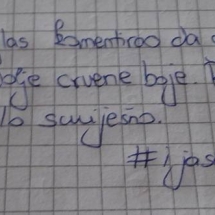 las komentirao da
bolje crvene boje.
lo smiješno.
#ijas